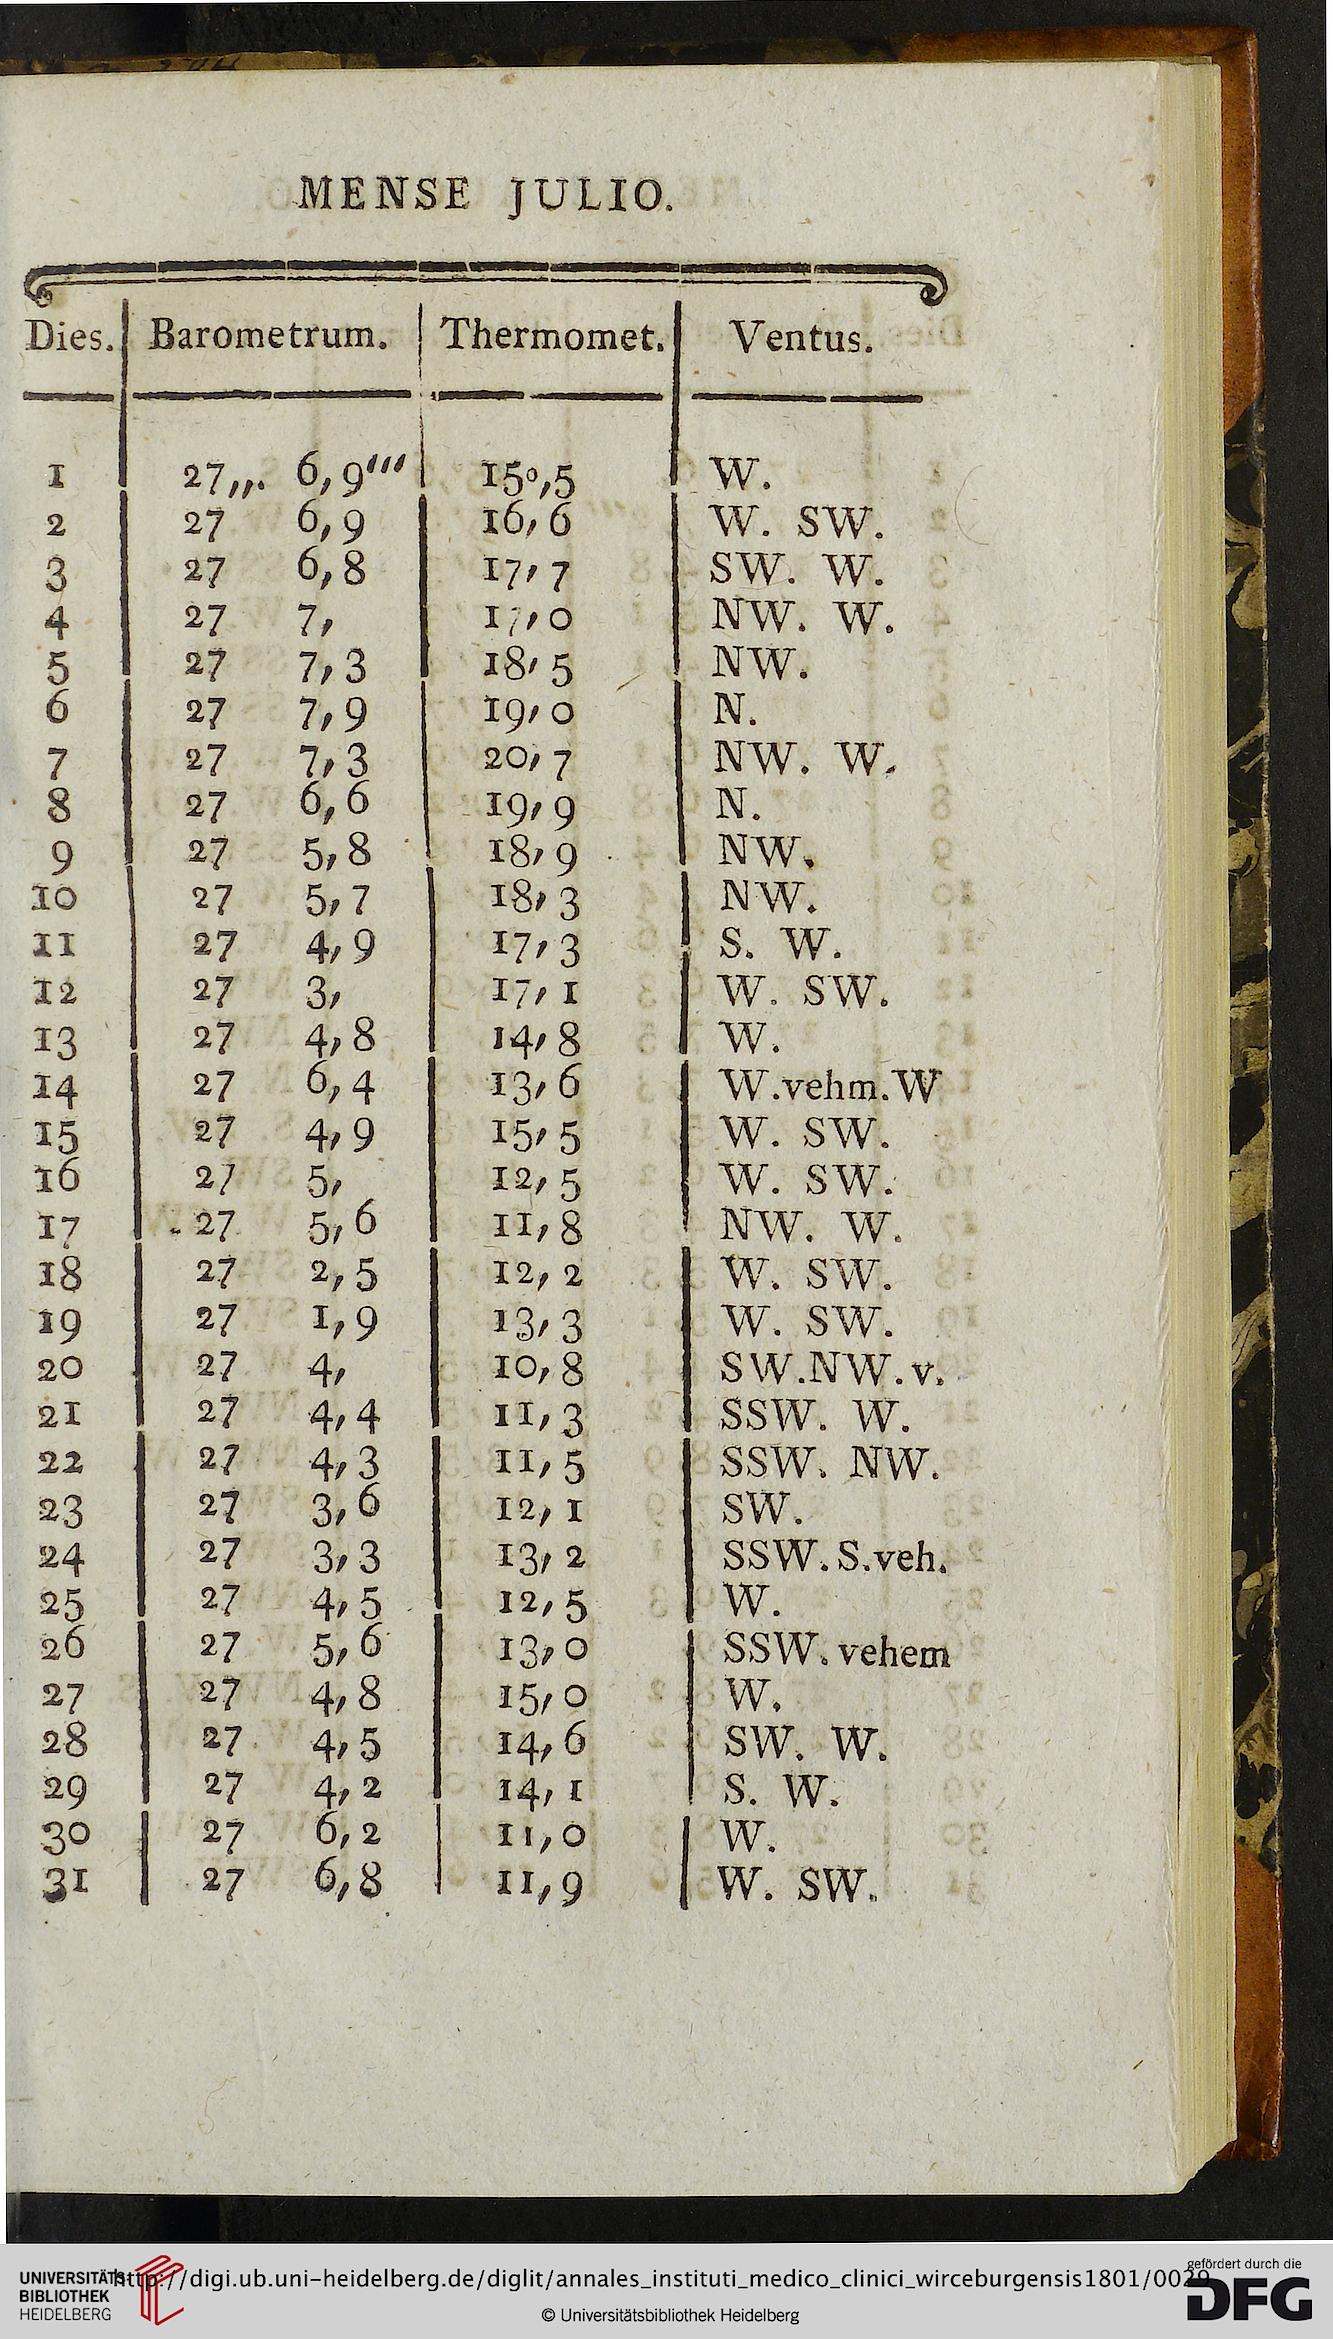 MENSE JULIO.
Dies. Barometrum. Thermomet. Ventus.
1 27,,,. 6,9''' 15°,5 W.
2 27 6,9 16,6 W. SW.
3 27 6,8 17,7 SW. W.
4 27 7, 17,0 NW. W.
5 27 7,3 18,5 NW.
6 27 7,9 19,0 N.
7 27 7,3 20,7 NW. W.
8 27 6,6 19,9 N.
9 27 5,8 18,9 NW.
10 27 5,7 18,3 NW.
11 27 4,9 17,3 S. W.
12 27 3, 17,1 W. SW.
13 27 4,8 14,8 W.
14 27 6,4 13,6 W.vehm.W
15 27 4,9 15,5 W. SW.
16 27 5, 12,5 W. SW.
17 27 5,6 11,8 NW. W.
18 27 2,5 12,2 W. SW.
19 27 1,9 13,3 W. SW.
20 27 4, 10,8 SW.NW.v.
21 27 4,4 11,3 SSW. W.
22 27 4,3 11,5 SSW. NW.
23 27 3,6 12,1 SW.
24 27 3,3 13,2 SSW.S.veh.
25 27 4,5 12,5 W.
26 27 5,6 13,0 SSW.vehem
27 27 4,8 15,0 W.
28 27 4,5 14,6 SW. W.
29 27 4,2 14,1 S. W.
30 27 6,2 11,0 W.
31 27 6,8 11,9 W. SW.
UNIVERSITÄTS-
BIBLIOTHEK
HEIDELBERG
http://digi.ub.uni-heidelberg.de/diglit/annales_instituti_medico_clinici_wirceburgensis1801/0029
© Universitätsbibliothek Heidelberg
gefördert durch die
DFG